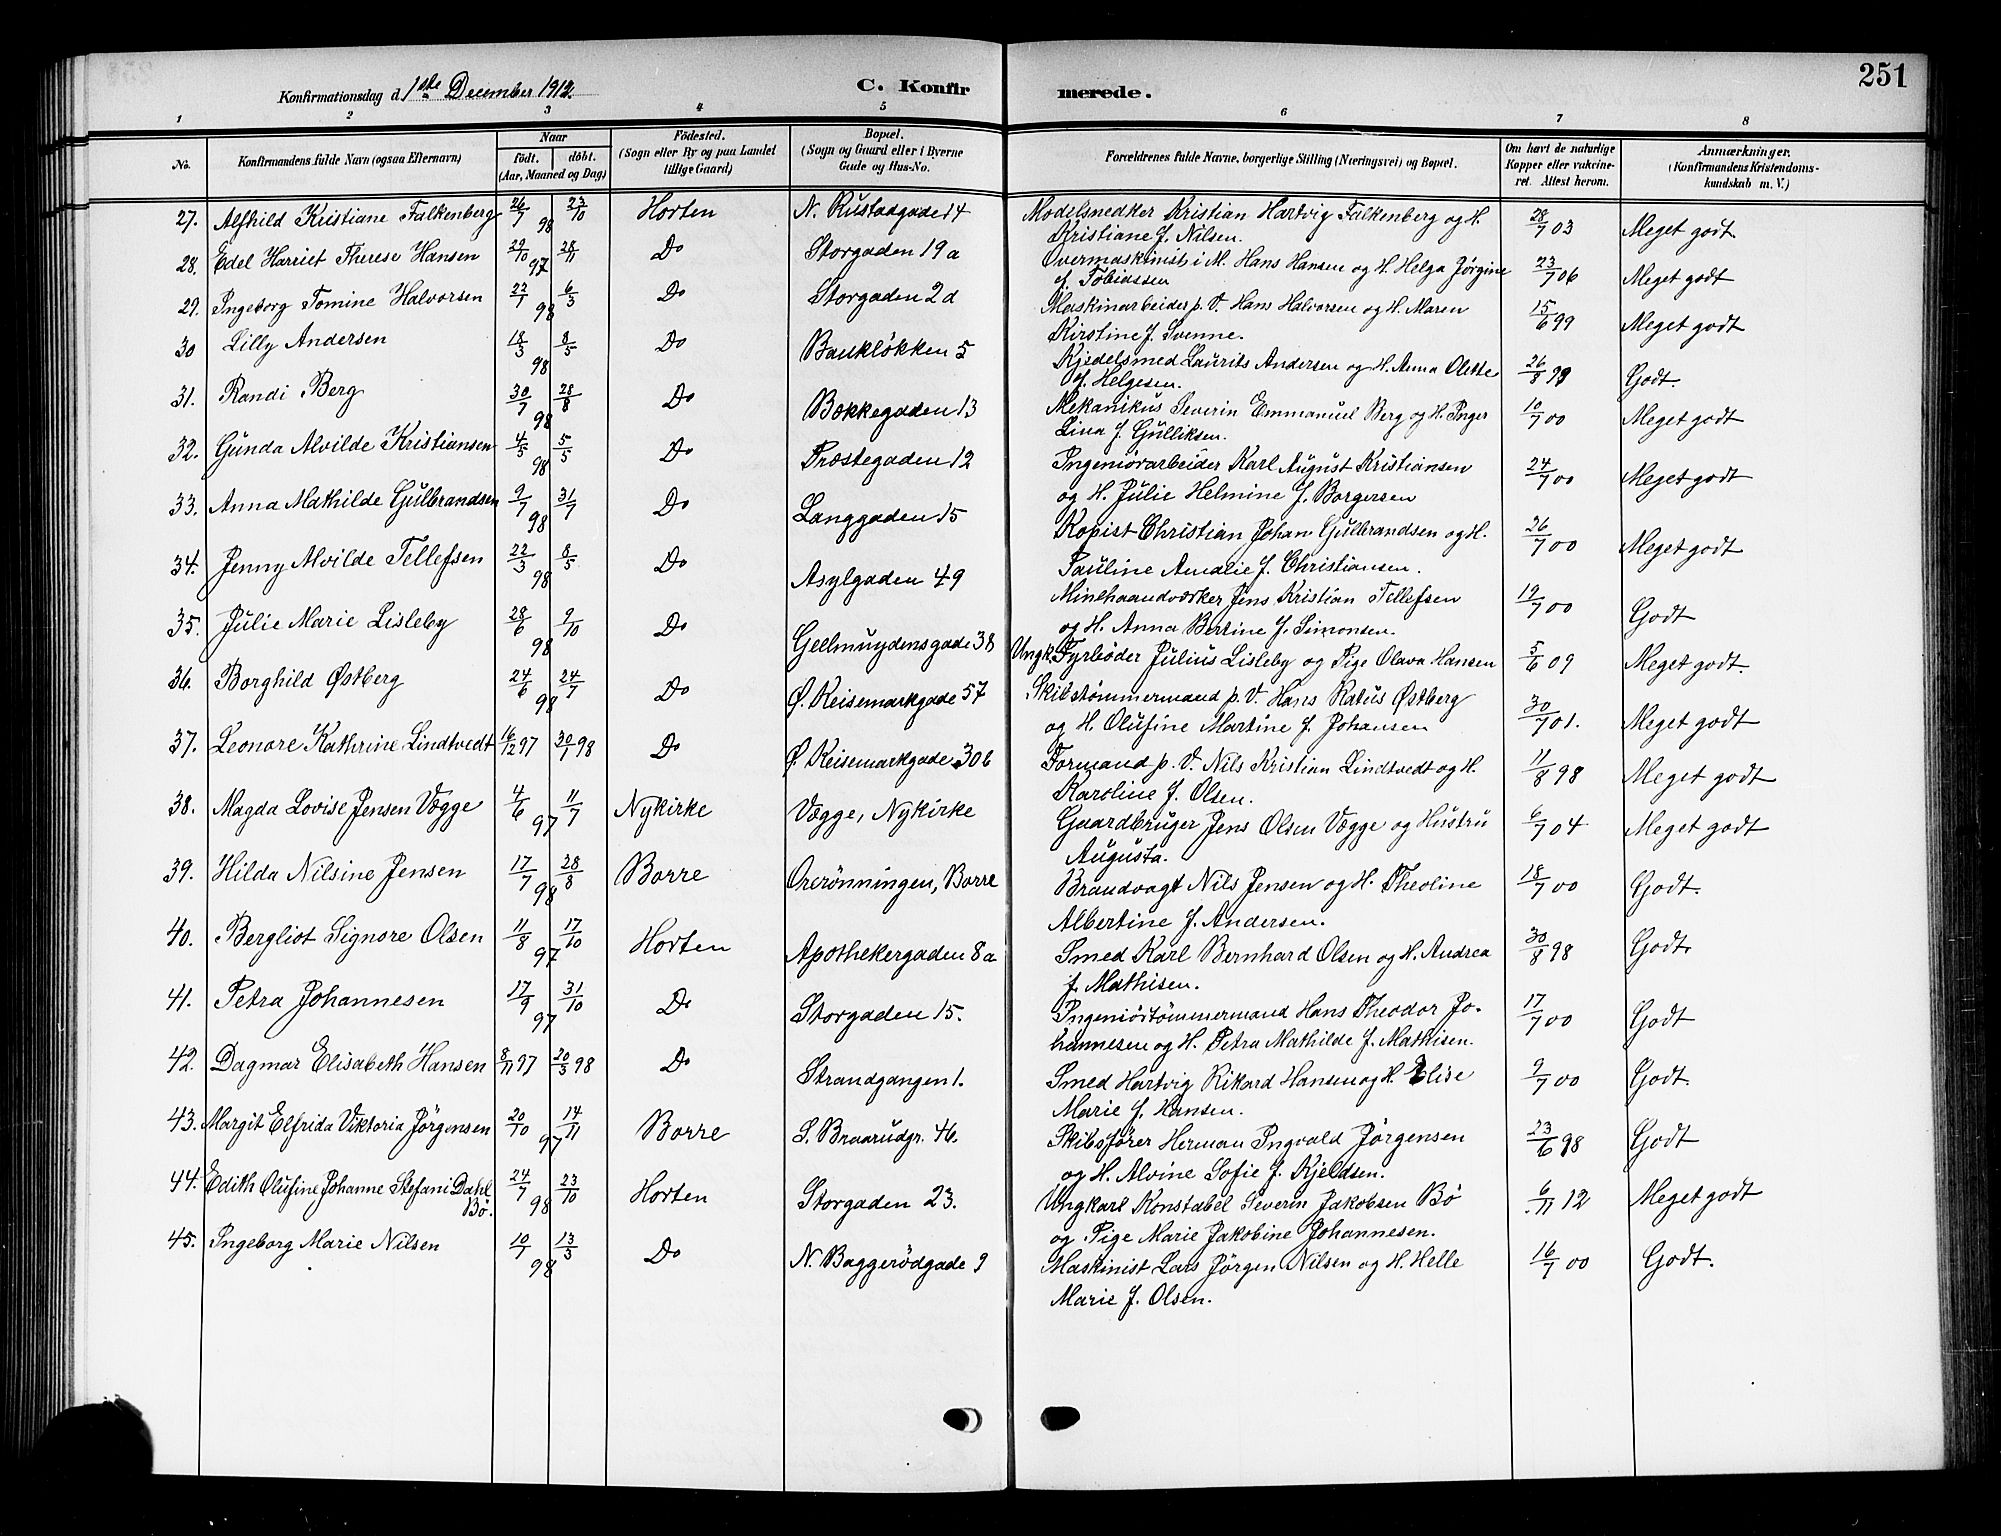 251
Konfirmationsdag d. 1ste December 1912.
C. Konfir merede.
1 2 3 4 5 6 7 8
No. Konfirmandens fulde Navn (ogsaa Efternavn) Naar født. døbt. (Aar, Maaned og Dag) Fødested. (Sogn eller By og paa Landet tillige Gaard) Bopæl. (Sogn og Gaard eller i Byerne Gade og Hus-No. Forældrenes fulde Navne, borgerlige Stilling (Næringsvei) og Bopæl. Om havt de naturlige Kopper eller vakcineret. Attest herom. Anmærkninger. (Konfirmandens Kristendomskundskab m. V.)
27. Alfhild Kristiane Falkenberg 26/7 98 23/10 Horten N. Rustadgade 14 Modelsnedker Kristian Hartvig Falkenberg og H. 28/7 03 Meget godt
Kristiane f. Nilsen.
28. Edel Harriet Therese Hansen 29/10 97 28/11 Do Storgaden 19a Overmaskinist i M. Hans Hansen og H. Helga Jørgine 23/7 06 Meget godt
f. Tobiassen
29. Ingeborg Tomine Halvorsen 22/1 98 6/3 Do Storgaden 2d Maskinarbeider p. V. Hans Halvorsen og H. Maren 15/6 99 Meget godt
Kirstine f. Svenne.
30 Lilly Andersen 18/3 98 8/5 Do Baukløkken 5 Kjedelsmed Laurits Andersen og H. Anna Olette 26/8 99 Godt.
f. Helgesen.
31. Randi Berg 30/7 98 28/8 Do Bakkegaden 13 Mekanikus Severin Emmanuel Berg og H. Inger 10/7 00 Meget godt
Lina f. Gulliksen.
32. Gunda Alvilde Kristiansen 4/5 98 5/5 Do Præstegaden 12 Ingeniörarbeider Karl August Kristiansen 24/7 00 Meget godt
og H. Julie Helmine f. Borgersen
33. Anna Mathilde Gulbrandsen 9/7 98 31/7 Do Langgaden 15 Kopist Christian Johan Gulbrandsen og H. 26/7 00 Meget godt
Pauline Amalie f. Christiansen.
34. Jenny Alvilde Tellefsen 22/3 98 8/5 Do Asylgaden 49 Minehaandværker Jens Kristian Tellefsen 19/7 00 Godt
og H. Anna Bertine f. Simonsen.
35. Julie Marie Lisleby 28/6 98 9/10 Do Gellmuydensgade 38 Ungk. Fyrbøder Julius Lisleby og Pige Olava Hansen 5/6 09 Meget godt.
36. Borghild Østberg 24/6 98 24/7 Do Ø. Keisemarkgade 57 Skibstømmermand p. V. Hans Ratus Østberg 30/7 01. Meget godt
og H. Olufine Martine f. Johansen
37. Leonore Kathrine Lindtvedt 16/12 97 30/1 98 Do Ø. Keisemarkgade 30b Formand p. V. Nils Kristian Lindtvedt og H. 11/8 98 Meget godt
Karoline f. Olsen.
38. Magda Lovise Jensen Vægge 4/6 97 11/7 Nykirke Vægge, Nykirke Gaardbruger Jens Olsen Vægge og Hustru 6/7 04 Meget godt
Augusta.
39. Hilda Nilsine Jensen 17/7 98 28/8 Borre Orerønningen, Borre Brandvagt Nils Jensen og H. Theoline 18/7 00 Godt.
Albertine f. Andersen.
40. Bergliot Signore Olsen 11/8 97 17/10 Horten Apothekergaden 8a Smed Karl Bernhard Olsen og H. Andrea 30/8 98 Godt.
f. Mathisen.
41. Petra Johannesen 17/9 97 31/10 Do Storgaden 15. Ingeniörtömmermand Hans Theodor Jo- 17/7 00 Godt
hannesen og H. Petra Mathilde f. Mathisen.
42. Dagmar Elisabeth Hansen 8/11 97 20/3 98 Do Strandgangen 1. Smed Hartvig Rikard Hansen og H. Elise 9/7 00 Godt.
Marie f. Hansen.
43. Margit Elfrida Viktoria Jørgensen 20/10 97 14/11 Borre S. Braarudgr. 46. Skibsfører Herman Ingvald Jørgensen 23/6 98 Godt
og H. Alvine Sofie f. Kjeldsen.
44. Edith Olufine Johanne Stefani Dahl Bö. 24/7 98 23/10 Horten Storgaden 23. Ungkarl Konstabel Severin Jakobsen Bö 6/11 12 Meget godt
og Pige Marie Jakobine Johannesen.
45. Ingeborg Marie Nilsen 10/1 98 13/3 Do N. Baggerødgade 9 Maskinist Lars Jörgen Nilsen og H. Helle 16/7 00 Godt.
Marie f. Olsen.